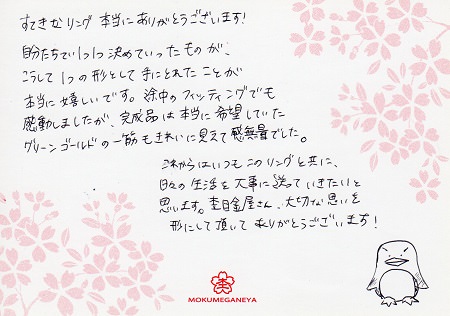 すてきなリング 本当にありがとうございます!
自分たちで1つ1つ決めていったものが、
こうして1つの形として手にとれたことが
本当に嬉しいです。途中のフィッティングでも
感動しましたが、完成品は本当に希望していた
グリーンゴールドの一筋もきれいに見えて感無量でした。
これからはいつもこのリングと共に、
日々の生活を大事に送っていきたいと
思います。杢目金屋さん、大切な思いを
形にして頂いてありがとうございます!
MOKUMEGANEYA